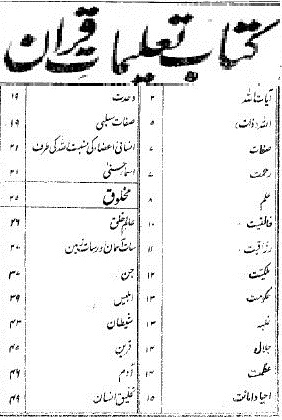 کتاب تعلیمات قرآن
آیات اللہ ۲
اللہ (ذات) ۵
صفات ۷
رحمت ۷
علم ۸
خالقیت ۱۰
رزاقیت ۱۱
ملکیت ۱۲
حکومت ۱۳
غلبہ ۱۳
جلال ۱۴
عظمت ۱۴
احیا و اماتت ۱۵
وحدت ۱۹
صفات سلبی ۱۹
انسانی اعضاء کی نسبت اللہ کی طرف ۲۱
اسماء حسنیٰ ۲۱
مخلوق ۲۵
عالم خلق ۲۶
سات آسمان اور سات زمین
جن ۳۷
ابلیس ۳۹
شیطان ۴۳
قرین ۴۵
آدم ۴۶
تخلیق انسان ۴۹